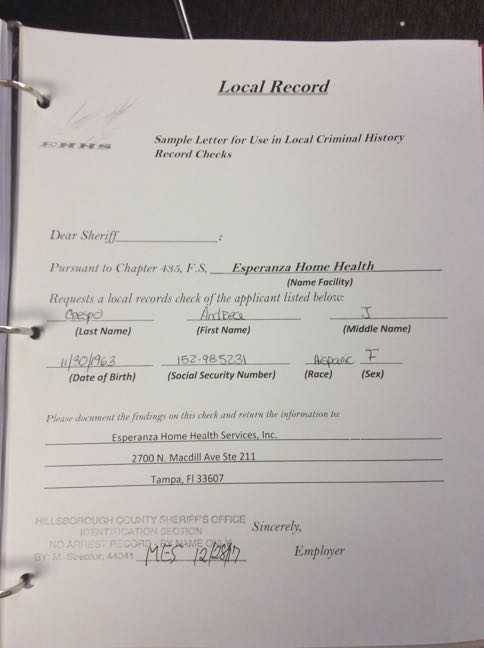 Local Record
EHHS
Sample Letter for Use in Local Criminal History
Record Checks
Dear Sheriff____________:
Pursuant to Chapter 435, F.S, Esperanza Home Health
(Name Facility)
Requests a local records check of the applicant listed below:
Crespo Andrea J
(Last Name) (First Name) (Middle Name)
11/30/1963 152-985231 Hispanic F
(Date of Birth) (Social Security Number) (Race) (Sex)
Please document the findings on this check and return the information to:
Esperanza Home Health Services, Inc.
2700 N. Macdill Ave Ste 211
Tampa, Fl 33607
HILLSBOROUGH COUNTY SHERIFF'S OFFICE
IDENTIFICATION SECTION
NO ARREST RECORD - BY NAME ONLY
BY: M. 44041 MES 12/28/17
Sincerely,
Employer